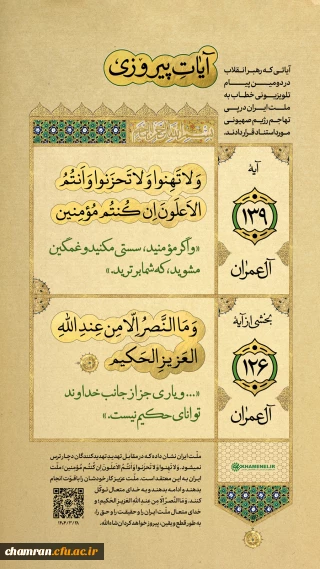 آیات پیروزی
آیاتی که رهبر انقلاب
در دومین پیام
تلویزیونی خطاب به
ملت ایران در پی
تهاجم رژیم صهیونی
مورد استناد قرار دادند.
آیهٔ
۱۳۹
آل عمران
وَلا تَهِنوا وَلا تَحزَنوا وَأَنتُمُ
الأَعلَونَ إِن كُنتُم مُؤمِنينَ
«واگر مؤمنید، سستی مکنید و غمگین
مشوید، که شما برترید.»
بخشی از آیهٔ
۱۲۶
آل عمران
وَمَا النَّصرُ إِلّا مِن عِندِ اللهِ
العَزيزِ الحَكيمِ
«... و یاری جز از جانب خداوند
توانای حکیم نیست.»
KHAMENEI.IR
ملّت ایران نشان داده که در مقابل تهدیدِ تهدیدکنندگان دچار ترس
نمیشود. وَلا تَهِنوا وَلا تَحزَنوا وَأَنتُمُ الأَعلَونَ إِن كُنتُم مُؤمِنين؛ ملّت
ایران به این معتقد است. ملّت عزیز کار خودشان را با قوّت انجام
بدهند و ادامه بدهند و به خدای متعال توکّل
کنند. وَمَا النَّصرُ إِلّا مِن عِندِ اللهِ العَزيزِ الحَكيم؛ و
خدای متعال ملّت ایران را و حقیقت را و حق را،
به طور قطع و یقین، پیروز خواهد کرد ان‌شاءالله.
۱۴۰۴/۳/۲۸
chamran.cfu.ac.ir